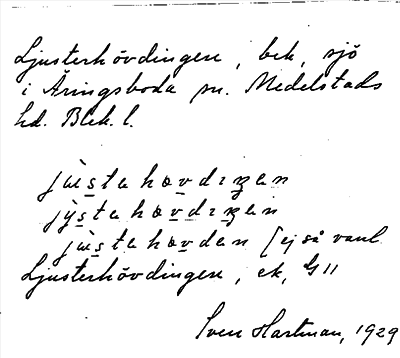 Ljusterhövdingen, bek, sjö
i Åringsboda sn. Medelstads
hd. Blek. l.
jùsta hövdiŋen
jỳsta hövdiŋen
jùsta hövden [ej så vanl.
Ljusterhövdingen, ek, G 11
Sven Hartman, 1929